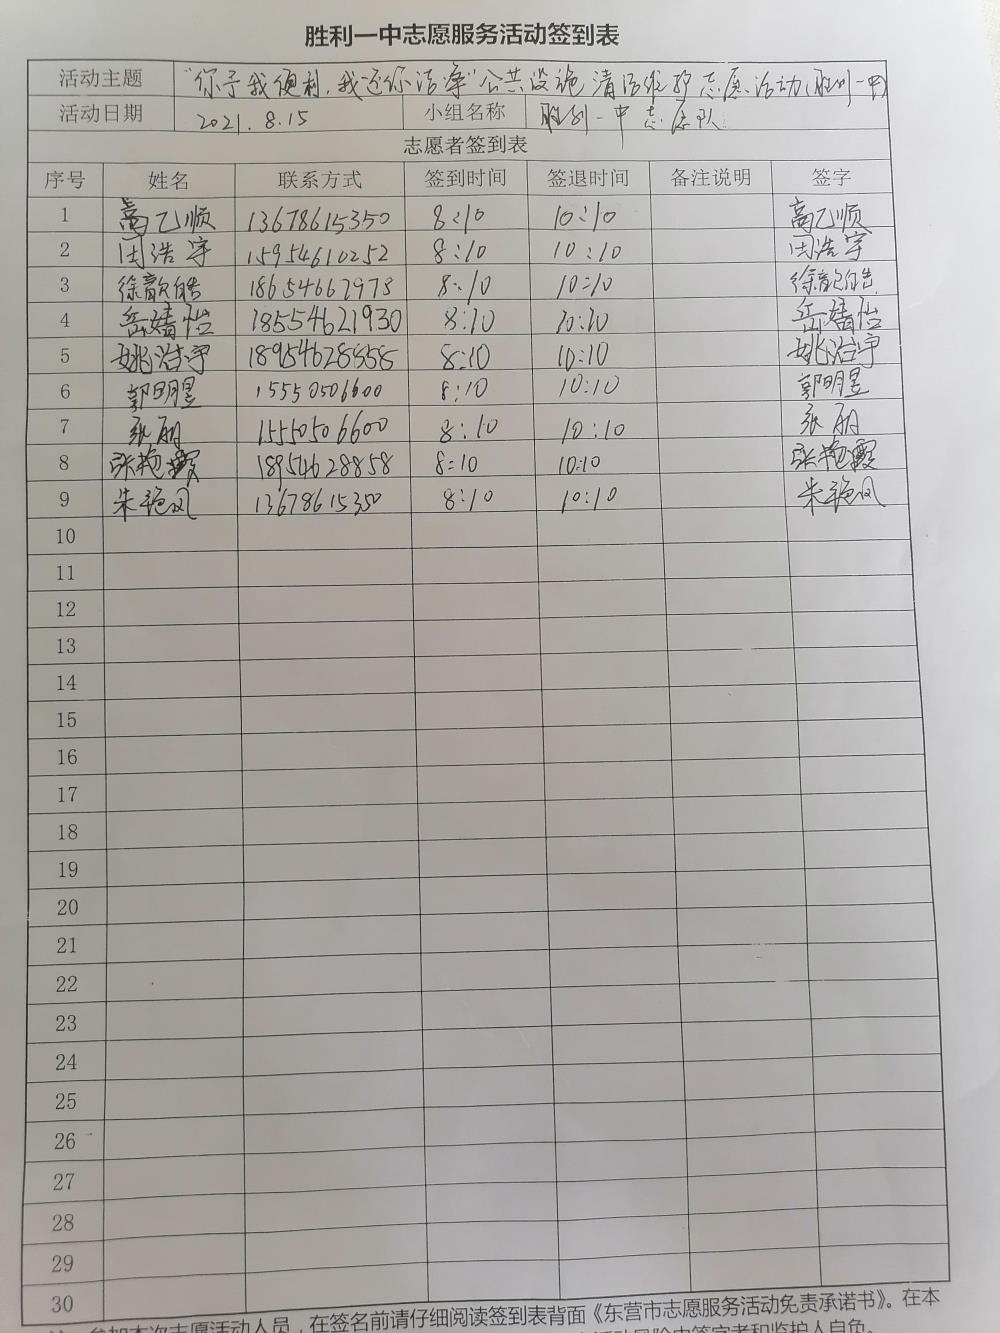 胜利一中志愿服务活动签到表
活动主题 "你予我便利,我还你洁净"公共设施清洁维护志愿活动(胜利一中)
活动日期 2021.8.15 小组名称 胜利一中志愿队
志愿者签到表
序号 姓名 联系方式 签到时间 签退时间 备注说明 签字
1 高乙顺 13678615350 8:10 10:10 高乙顺
2 闫浩宇 15954610252 8:10 10:10 闫浩宇
3 徐歆皓 18654662973 8:10 10:10 徐歆皓
4 岳婧怡 18554621930 8:10 10:10 岳婧怡
5 姚浩宇 18954628858 8:10 10:10 姚浩宇
6 郭明昱 15550506600 8:10 10:10 郭明昱
7 张丽 15550506600 8:10 10:10 张丽
8 张艳霞 18954628858 8:10 10:10 张艳霞
9 朱艳凤 13678615350 8:10 10:10 朱艳凤
10
11
12
13
14
15
16
17
18
19
20
21
22
23
24
25
26
27
28
29
30
参加本次志愿活动人员,在签名前请仔细阅读签到表背面《东营市志愿服务活动免责承诺书》。在本
风险由签字者和监护人自负。